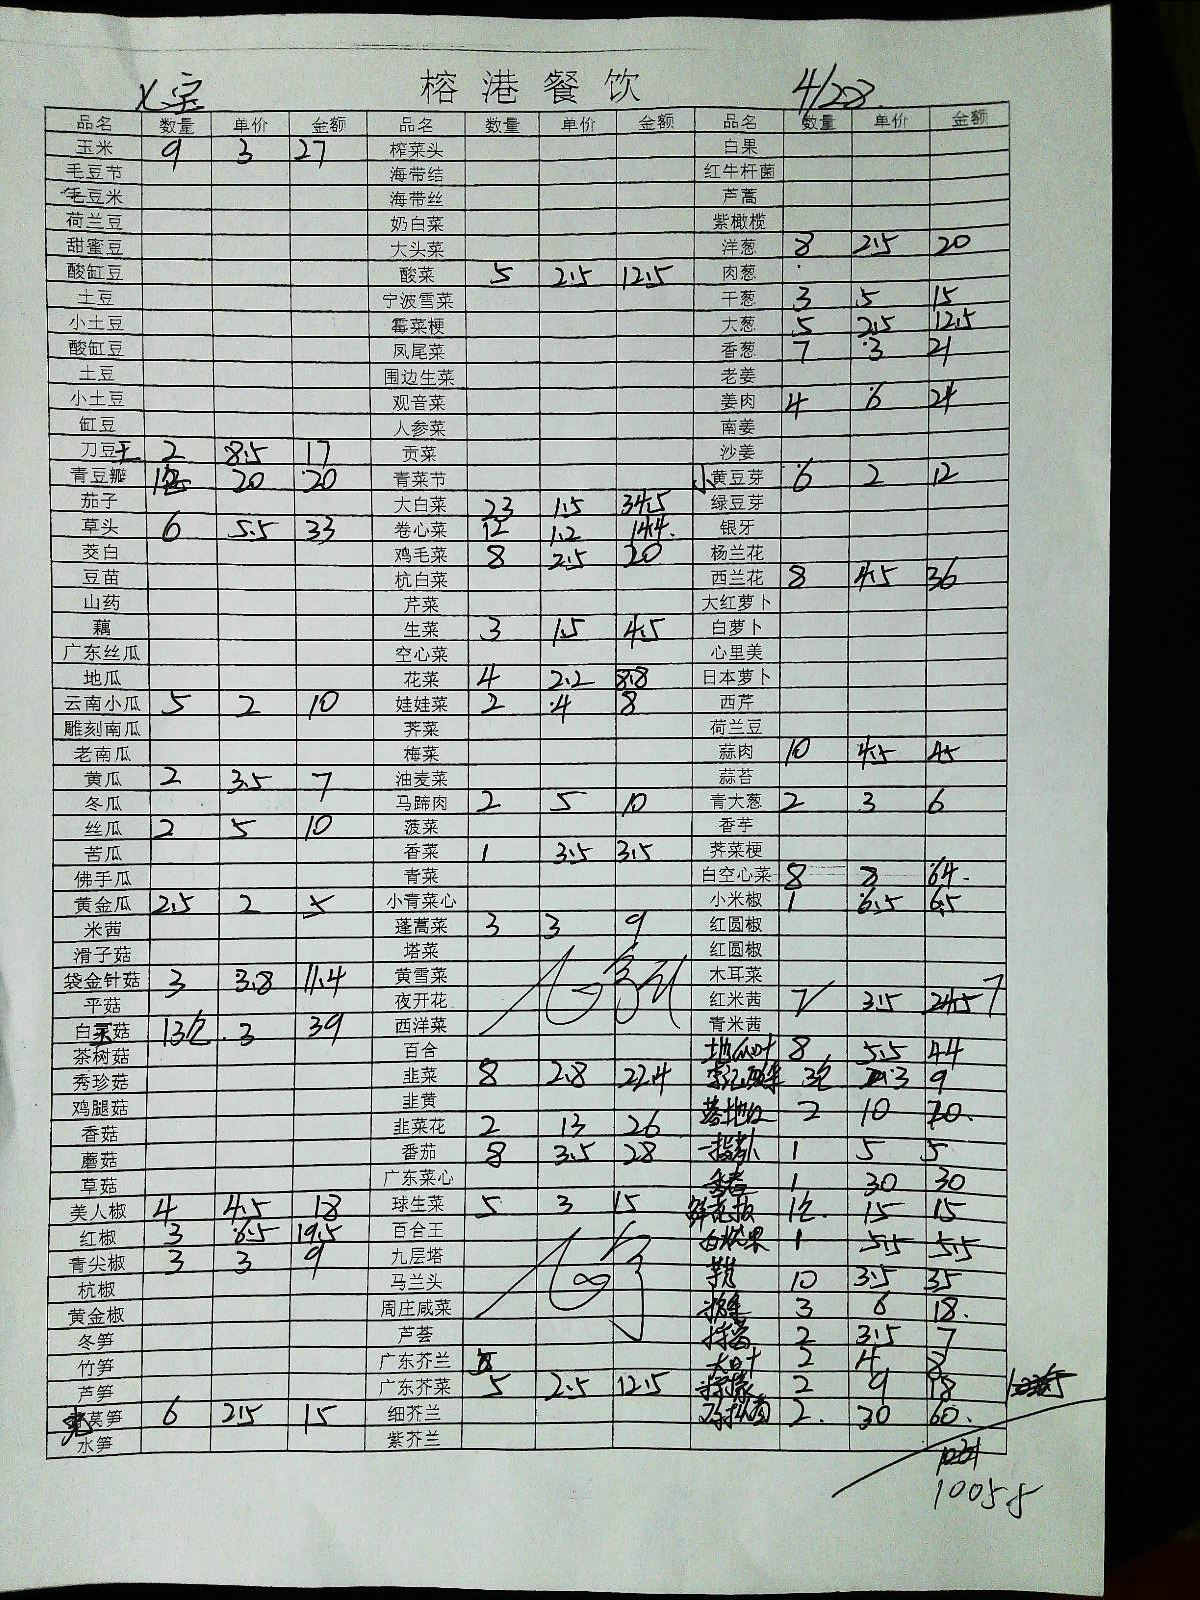 榕港餐饮
4/28.
品名 数量 单价 金额 品名 数量 单价 金额 品名 数量 单价 金额
玉米 9 3 27 榨菜头 白果
毛豆节 海带结 红牛杆菌
毛豆米 海带丝 芦蒿
荷兰豆 奶白菜 紫橄榄
甜蜜豆 大头菜 洋葱 8 2.5 20
酸缸豆 酸菜 5 2.5 12.5 肉葱
土豆 宁波雪菜 干葱 3 5 15
小土豆 霉菜梗 大葱 5 2.5 12.5
酸缸豆 凤尾菜 香葱 7 3 21
土豆 围边生菜 老姜
小土豆 观音菜 姜肉 4 6 24
缸豆 人参菜 南姜
刀豆 2 8.5 17 贡菜 沙姜
青豆瓣 20 20 青菜节 小黄豆芽 6 2 12
茄子 大白菜 23 1.5 34.5 绿豆芽
草头 6 5.5 33 卷心菜 12 1.2 14.4. 银牙
茭白 鸡毛菜 8 2.5 20 杨兰花
豆苗 杭白菜 西兰花 8 4.5 36
山药 芹菜 大红萝卜
藕 生菜 3 1.5 4.5 白萝卜
广东丝瓜 空心菜 心里美
地瓜 花菜 4 2.2 8.8 日本萝卜
云南小瓜 5 2 10 娃娃菜 2 4 8 西芹
雕刻南瓜 荠菜 荷兰豆
老南瓜 梅菜 蒜肉 10 4.5 45
黄瓜 2 3.5 7 油麦菜 蒜苔
冬瓜 马蹄肉 2 5 10 青大葱 2 3 6
丝瓜 2 5 10 菠菜 香芋
苦瓜 香菜 1 3.5 3.5 荠菜梗
佛手瓜 青菜 白空心菜 8 8 64.
黄金瓜 2.5 2 5 小青菜心 小米椒 1 6.5 6.5
米茜 蓬蒿菜 3 3 9 红圆椒
滑子菇 塔菜 红圆椒
袋金针菇 3 3.8 11.4 黄雪菜 木耳菜
平菇 夜开花 红米茜 7 3.5 24.5
白玉菇 13包 3 39 西洋菜 青米茜
茶树菇 百合 地瓜叶 8 5.5 44
秀珍菇 韭菜 8 2.8 22.4 3包 3 9
鸡腿菇 韭黄 落地红 2 10 20.
香菇 韭菜花 2 13 26 1 5 5
蘑菇 番茄 8 3.5 28 1 30 30
草菇 广东菜心 1包. 15 15
美人椒 4 4.5 18 球生菜 5 3 15 1 5.5 5.5
红椒 3 6.5 19.5 百合王 10 3.5 35
青尖椒 3 3 9 九层塔 3 6 18.
杭椒 马兰头 2 3.5 7
黄金椒 周庄咸菜 大叶 2 4 8
冬笋 芦荟 2 9 18
竹笋 广东芥兰 2. 30 60.
芦笋 广东芥菜 5 2.5 12.5
莴笋 6 2.5 15 细芥兰
水笋 紫芥兰
1005.5